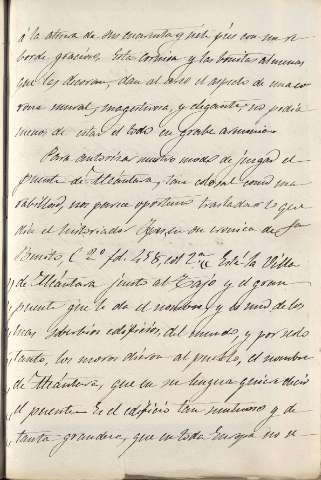 á la altura de sus cuarenta y siete pies con un re
borde gracioso. Esta cornisa y las bonitas almenas
que las decoran, dan al arco el aspecto de una co
rona mural, magestuosa, y elegante: no podia
menos de estar el todo en grande armonia.
Para autorizar nuestro modo de juzgar el
puente de Alcántara, tan colosal como ma
rabilloso, nos parece oportuno trasladar lo que
dice el historiador en su cronica de San
Benito, (2º fol. 458, col 2ª) Está la Villa
de Alcántara junto al Tajo y el gran
puente que le da el nombre, y es uno de los
mas soberbios edificios, del mundo, y por solo
tanto, los moros dieron al pueblo, el nombre
de Alcántara, que en su lengua quiere decir
el puente. Es el edificio tan suntuoso y de
tanta grandeza, que en toda Europa no se